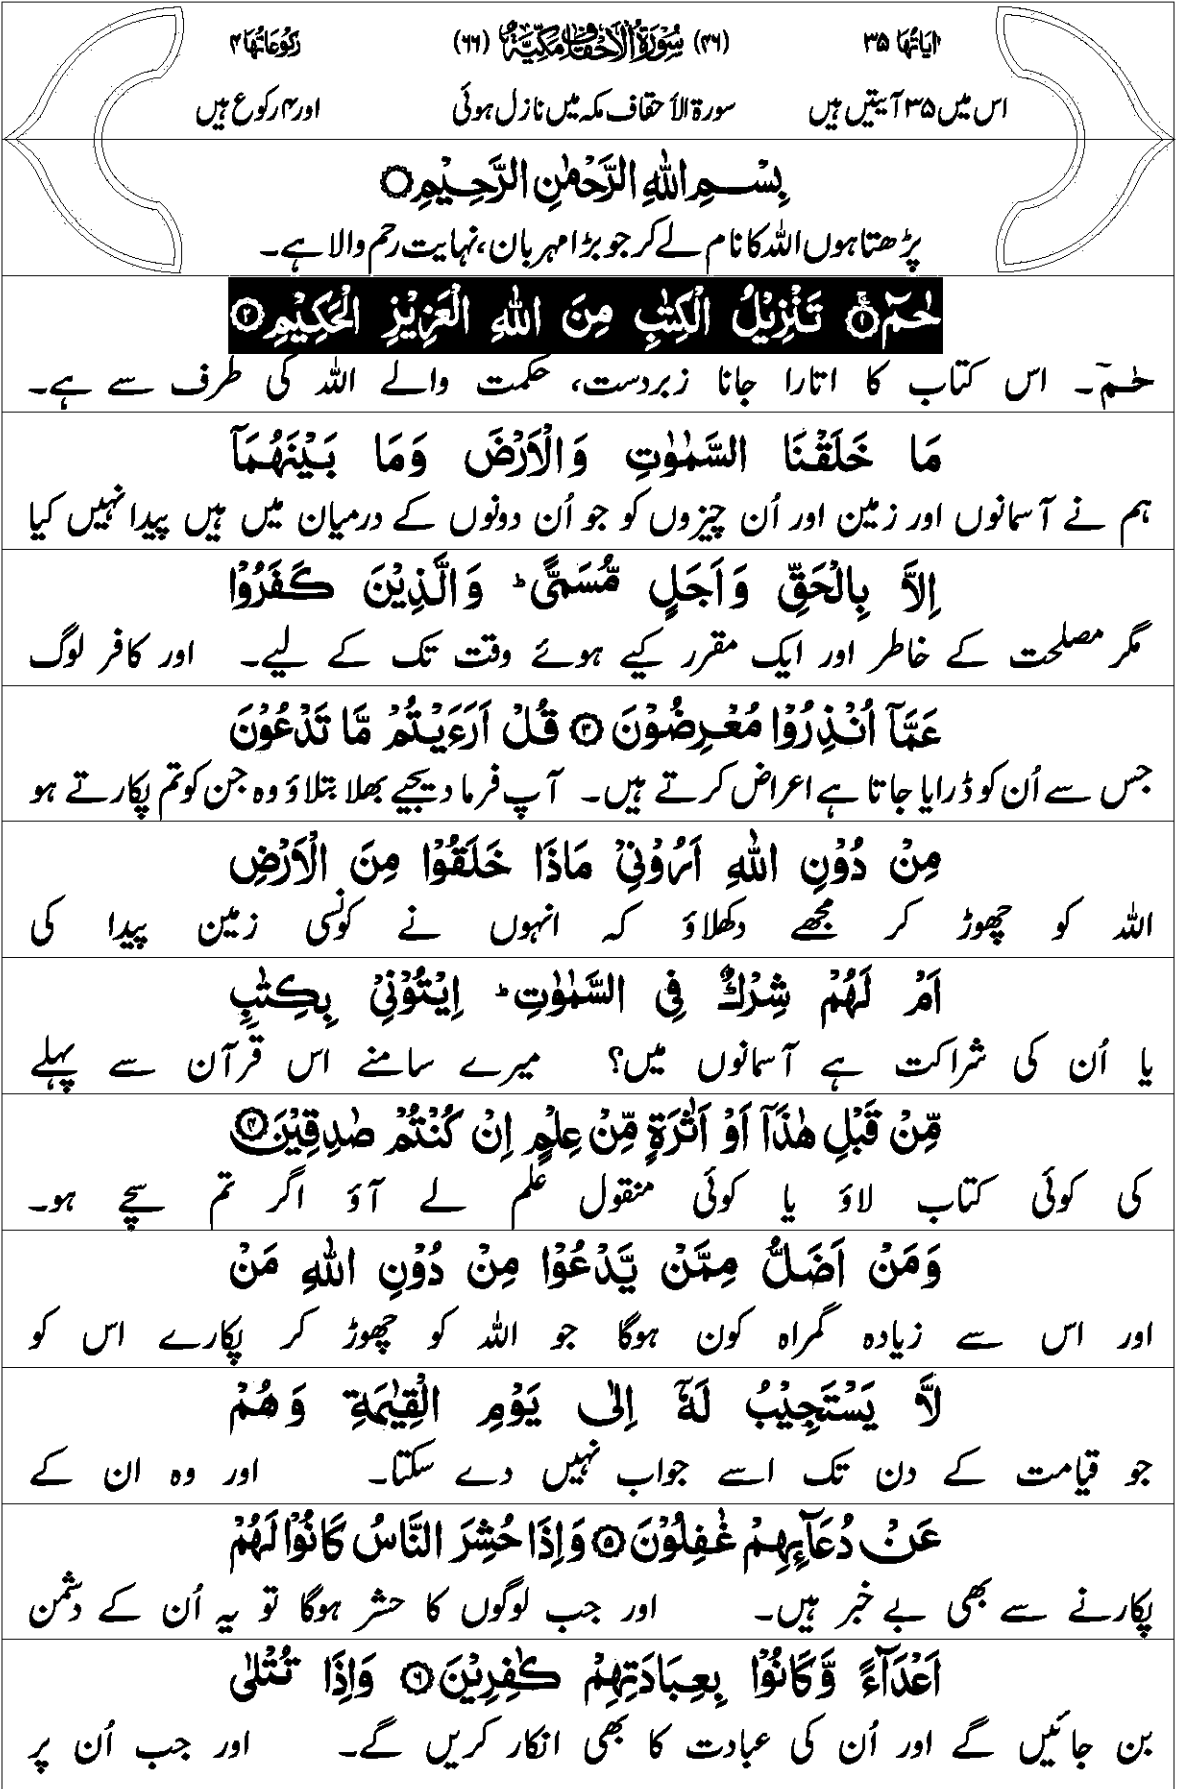 اٰیَاتُهَا ۳۵ (۴۶) سُوْرَةُ الْاَحْقَافِ مَكِّيَّةٌ (۶۶) رُكُوْعَاتُهَا ۴
اس میں ۳۵ آیتیں ہیں سورۃ الاحقاف مکہ میں نازل ہوئی اور ۴ رکوع ہیں
بِسْمِ اللهِ الرَّحْمٰنِ الرَّحِيْمِ○
پڑھتا ہوں اللہ کا نام لے کر جو بڑا مہربان، نہایت رحم والا ہے۔
حٰمٓ ۚ﴿۱﴾ تَنْزِيْلُ الْكِتٰبِ مِنَ اللهِ الْعَزِيْزِ الْحَكِيْمِ ﴿۲﴾
حٰمٓ۔ اس کتاب کا اتارا جانا زبردست، حکمت والے اللہ کی طرف سے ہے۔
مَا خَلَقْنَا السَّمٰوٰتِ وَالْاَرْضَ وَمَا بَيْنَهُمَآ
ہم نے آسمانوں اور زمین اور اُن چیزوں کو جو اُن دونوں کے درمیان میں ہیں پیدا نہیں کیا
اِلَّا بِالْحَقِّ وَاَجَلٍ مُّسَمًّى ؕ وَالَّذِيْنَ كَفَرُوْا
مگر مصلحت کے خاطر اور ایک مقرر کیے ہوئے وقت تک کے لیے۔ اور کافر لوگ
عَمَّآ اُنْذِرُوْا مُعْرِضُوْنَ ﴿۳﴾ قُلْ اَرَءَيْتُمْ مَّا تَدْعُوْنَ
جس سے اُن کو ڈرایا جاتا ہے اعراض کرتے ہیں۔ آپ فرما دیجیے بھلا بتلاؤ وہ جن کو تم پکارتے ہو
مِنْ دُوْنِ اللهِ اَرُوْنِيْ مَاذَا خَلَقُوْا مِنَ الْاَرْضِ
اللہ کو چھوڑ کر مجھے دکھلاؤ کہ انہوں نے کونسی زمین پیدا کی
اَمْ لَهُمْ شِرْكٌ فِي السَّمٰوٰتِ ؕ اِيْتُوْنِيْ بِكِتٰبٍ
یا اُن کی شراکت ہے آسمانوں میں؟ میرے سامنے اس قرآن سے پہلے
مِّنْ قَبْلِ هٰذَآ اَوْ اَثٰرَةٍ مِّنْ عِلْمٍ اِنْ كُنْتُمْ صٰدِقِيْنَ ﴿۴﴾
کی کوئی کتاب لاؤ یا کوئی منقول علم لے آؤ اگر تم سچے ہو۔
وَمَنْ اَضَلُّ مِمَّنْ يَّدْعُوْا مِنْ دُوْنِ اللهِ مَنْ
اور اس سے زیادہ گمراہ کون ہوگا جو اللہ کو چھوڑ کر پکارے اس کو
لَّا يَسْتَجِيْبُ لَهٗٓ اِلٰى يَوْمِ الْقِيٰمَةِ وَهُمْ
جو قیامت کے دن تک اسے جواب نہیں دے سکتا۔ اور وہ ان کے
عَنْ دُعَآئِهِمْ غٰفِلُوْنَ ﴿۵﴾ وَاِذَا حُشِرَ النَّاسُ كَانُوْا لَهُمْ
پکارنے سے بھی بے خبر ہیں۔ اور جب لوگوں کا حشر ہوگا تو یہ اُن کے دشمن
اَعْدَآءً وَّكَانُوْا بِعِبَادَتِهِمْ كٰفِرِيْنَ ﴿۶﴾ وَاِذَا تُتْلٰى
بن جائیں گے اور اُن کی عبادت کا بھی انکار کریں گے۔ اور جب اُن پر